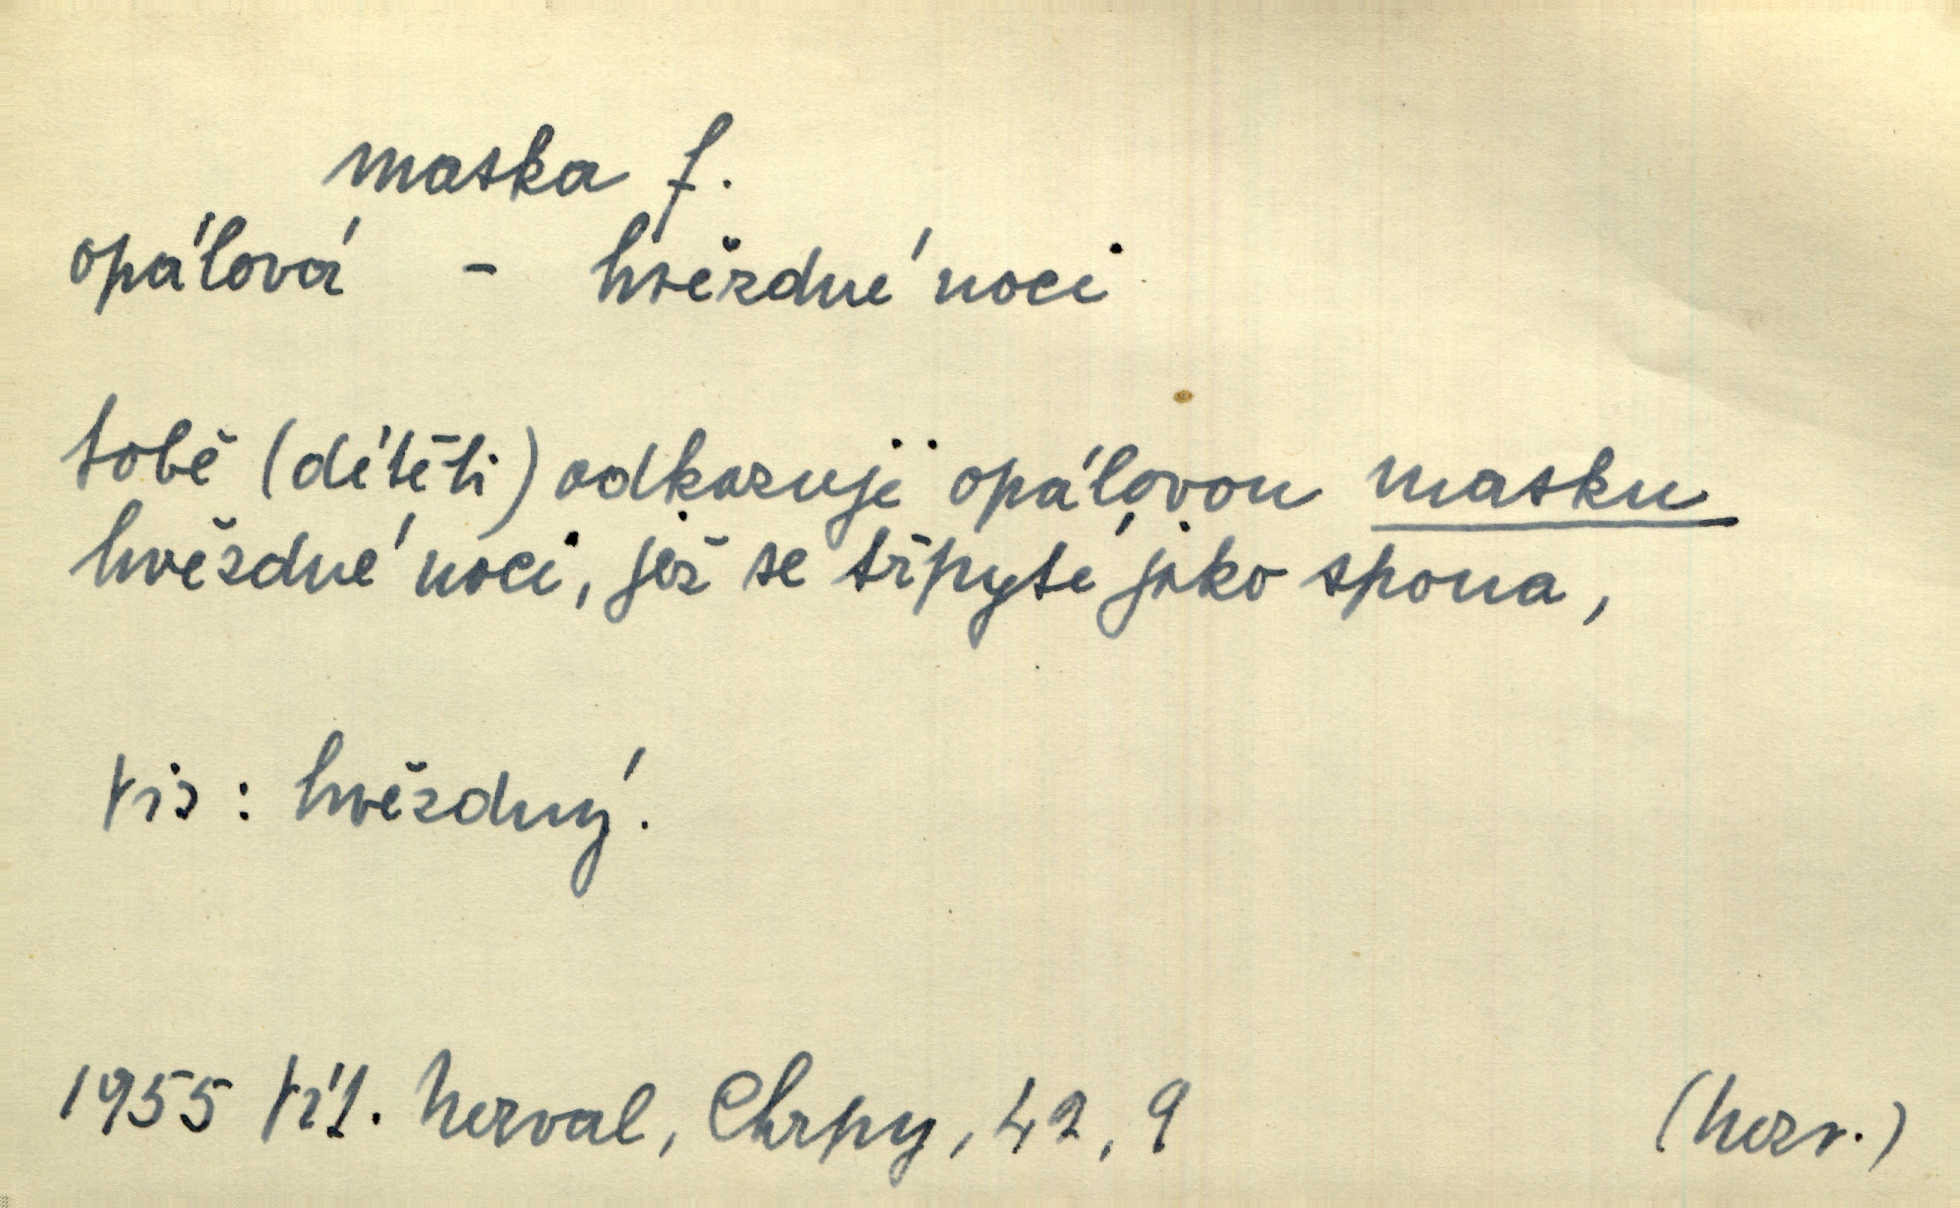 maska f.
opálová - hvězdné noci
tobě (dítěti) odkazuji opálovou masku
hvězdné noci, jež se třpytí jako spona,
Viz: hvězdný.
1955 Vít. Nerval, Chrpy, 42, 9 (Nerv.)